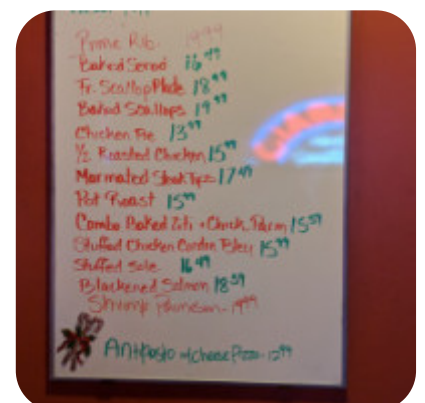 Prime Rib 19.99
Baked Scrod 16.49
Fr. Scallop Plate 18.99
Baked Scallops 19.99
Chicken Pie 13.99
1/2 Roasted Chicken 15.99
Marinated Steak Tips 17.49
Pot Roast 15.99
Combo Baked Ziti + Chick. Parm 15.59
Stuffed Chicken Cordon Bleu 15.99
Stuffed Sole 16.49
Blackened Salmon 18.59
Shrimp Parmesan - 19.99
Antipasto w/ Cheese Pizza - 12.99